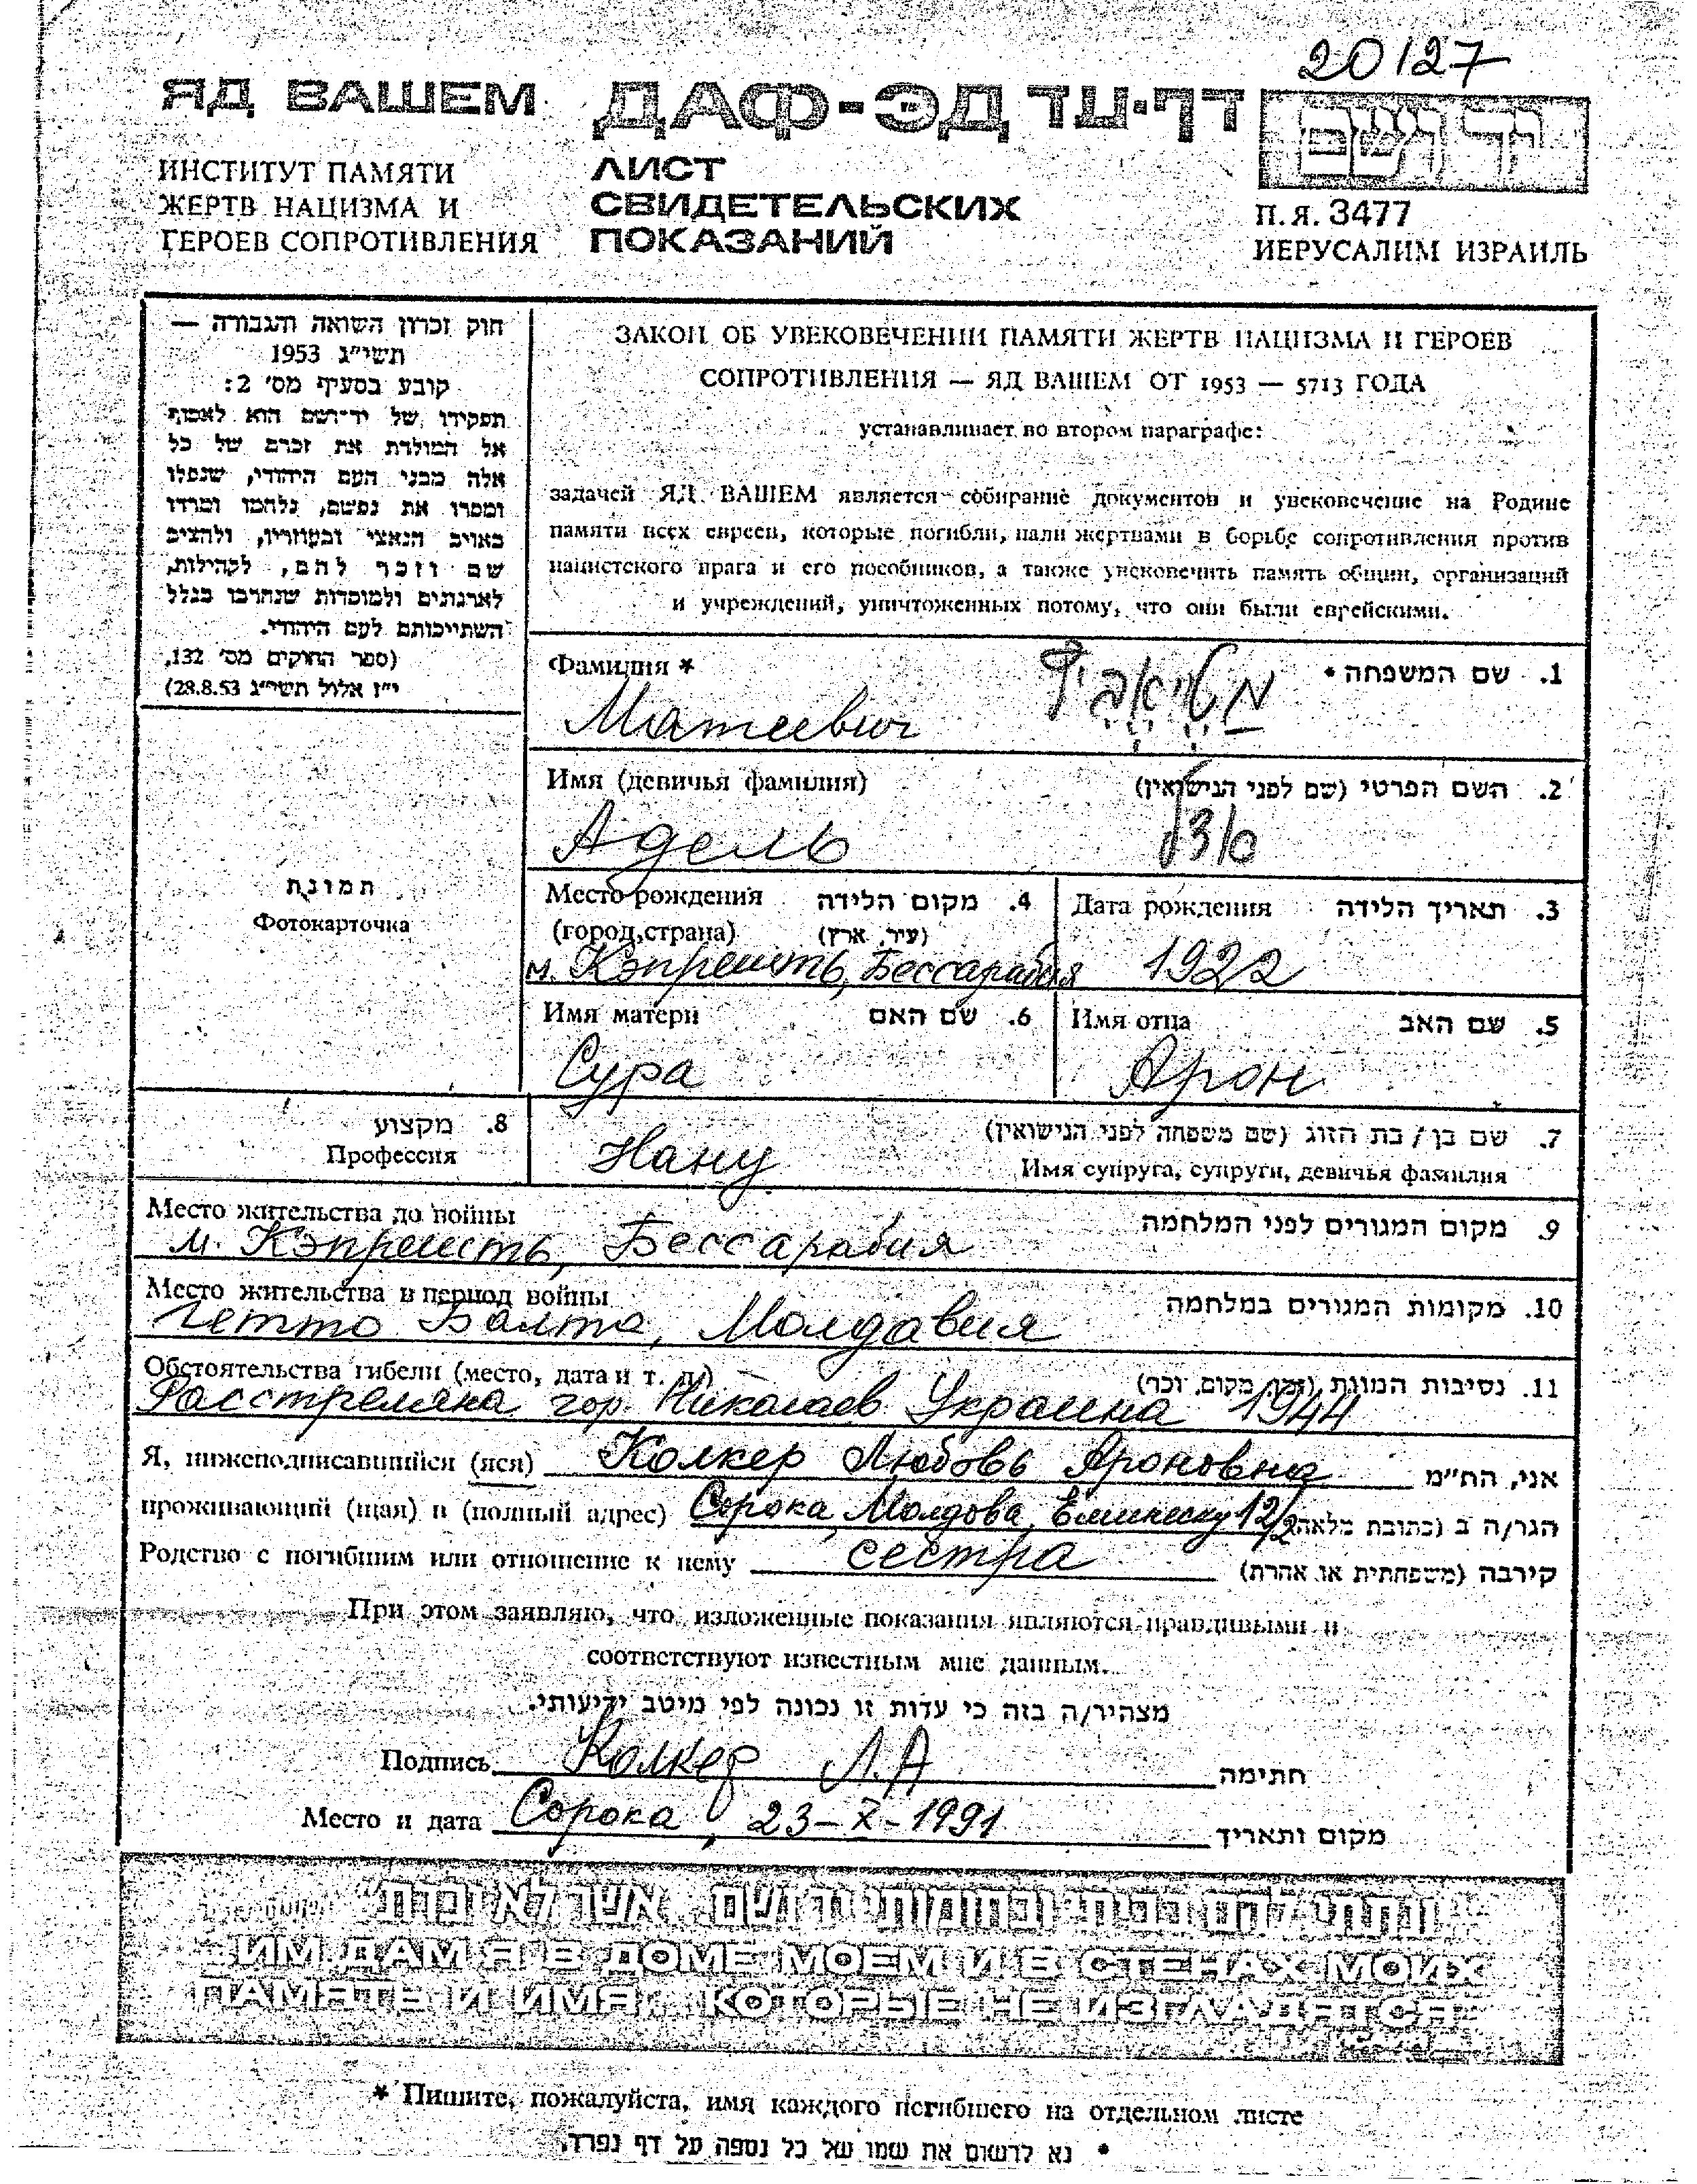 20127
ЯД ВАШЕМ
ДАФ-ЭД דף-עד
יד ושם
ИНСТИТУТ ПАМЯТИ
ЖЕРТВ НАЦИЗМА И
ГЕРОЕВ СОПРОТИВЛЕНИЯ
ЛИСТ
СВИДЕТЕЛЬСКИХ
ПОКАЗАНИЙ
П.Я. 3477
ИЕРУСАЛИМ ИЗРАИЛЬ
חוק זכרון השואה והגבורה —
תשי"ג 1953
קובע בסעיף מס' 2:
תפקידו של יד-ושם הוא לאסוף
אל המולדת את זכרם של כל
אלה מבני העם היהודי, שנפלו
ומסרו את נפשם, נלחמו ומרדו
באויב הנאצי ובעוזריו, ולהציב
שם וזכר להם, לקהילות,
לארגונים ולמוסדות שנחרבו בגלל
השתייכותם לעם היהודי.
(ספר החוקים מס' 132,
י"ז אלול תשי"ג 28.8.53)
ЗАКОН ОБ УВЕКОВЕЧЕНИИ ПАМЯТИ ЖЕРТВ НАЦИЗМА И ГЕРОЕВ
СОПРОТИВЛЕНИЯ — ЯД ВАШЕМ ОТ 1953 — 5713 ГОДА
устанавливает во втором параграфе:
задачей ЯД ВАШЕМ является собирание документов и увековечение на Родине
памяти всех евреев, которые погибли, пали жертвами в борьбе сопротивления против
нацистского врага и его пособников, а также увековечить память общин, организаций
и учреждений, уничтоженных потому, что они были еврейскими.
Фамилия * 1. שם המשפחה •
Матеевич
Имя (девичья фамилия) 2. השם הפרטי (שם לפני הנישואין)
Адель אדל
תמונת
Фотокарточка
Место рождения 4. מקום הלידה
(город,страна) (עיר, ארץ)
м. Кэпрешть, Бессарабия
Дата рождения 3. תאריך הלידה
1922
Имя матери 6. שם האם
Сура
Имя отца 5. שם האב
Арон
8. מקצוע
Профессия
7. שם בן / בת הזוג (שם משפחה לפני הנישואין)
Нану Имя супруга, супруги, девичья фамилия
Место жительства до войны 9. מקום המגורים לפני המלחמה
м. Кэпрешть, Бессарабия
Место жительства в период войны 10. מקומות המגורים במלחמה
гетто Балта, Молдавия
Обстоятельства гибели (место, дата и т. д.) 11. נסיבות המוות (זמן, מקום, וכו')
Расстреляна гор. Николаев Украина 1944
Я, нижеподписавшийся (яся) Колкер Любовь Ароновна אני, הח"מ
проживающий (щая) в (полный адрес) Сорока, Молдова, Еминеску 12/2 הגר/ה ב (כתובת מלאה)
Родство с погибшим или отношение к нему сестра קירבה (משפחתית או אחרת)
При этом заявляю, что изложенные показания являются правдивыми и
соответствуют известным мне данным.
מצהיר/ה בזה כי עדות זו נכונה לפי מיטב ידיעותי.
Подпись Колкер Л.А חתימה
Место и дата Сорока, 23-X-1991 מקום ותאריך
"ונתתי להם בביתי ובחומותי יד ושם... אשר לא יכרת"
ИМ ДАМ Я В ДОМЕ МОЕМ И В СТЕНАХ МОИХ
ПАМЯТЬ И ИМЯ... КОТОРЫЕ НЕ ИЗГЛАДЯТСЯ
* Пишите, пожалуйста, имя каждого погибшего на отдельном листе
• נא לרשום את שמו של כל נספה על דף נפרד.